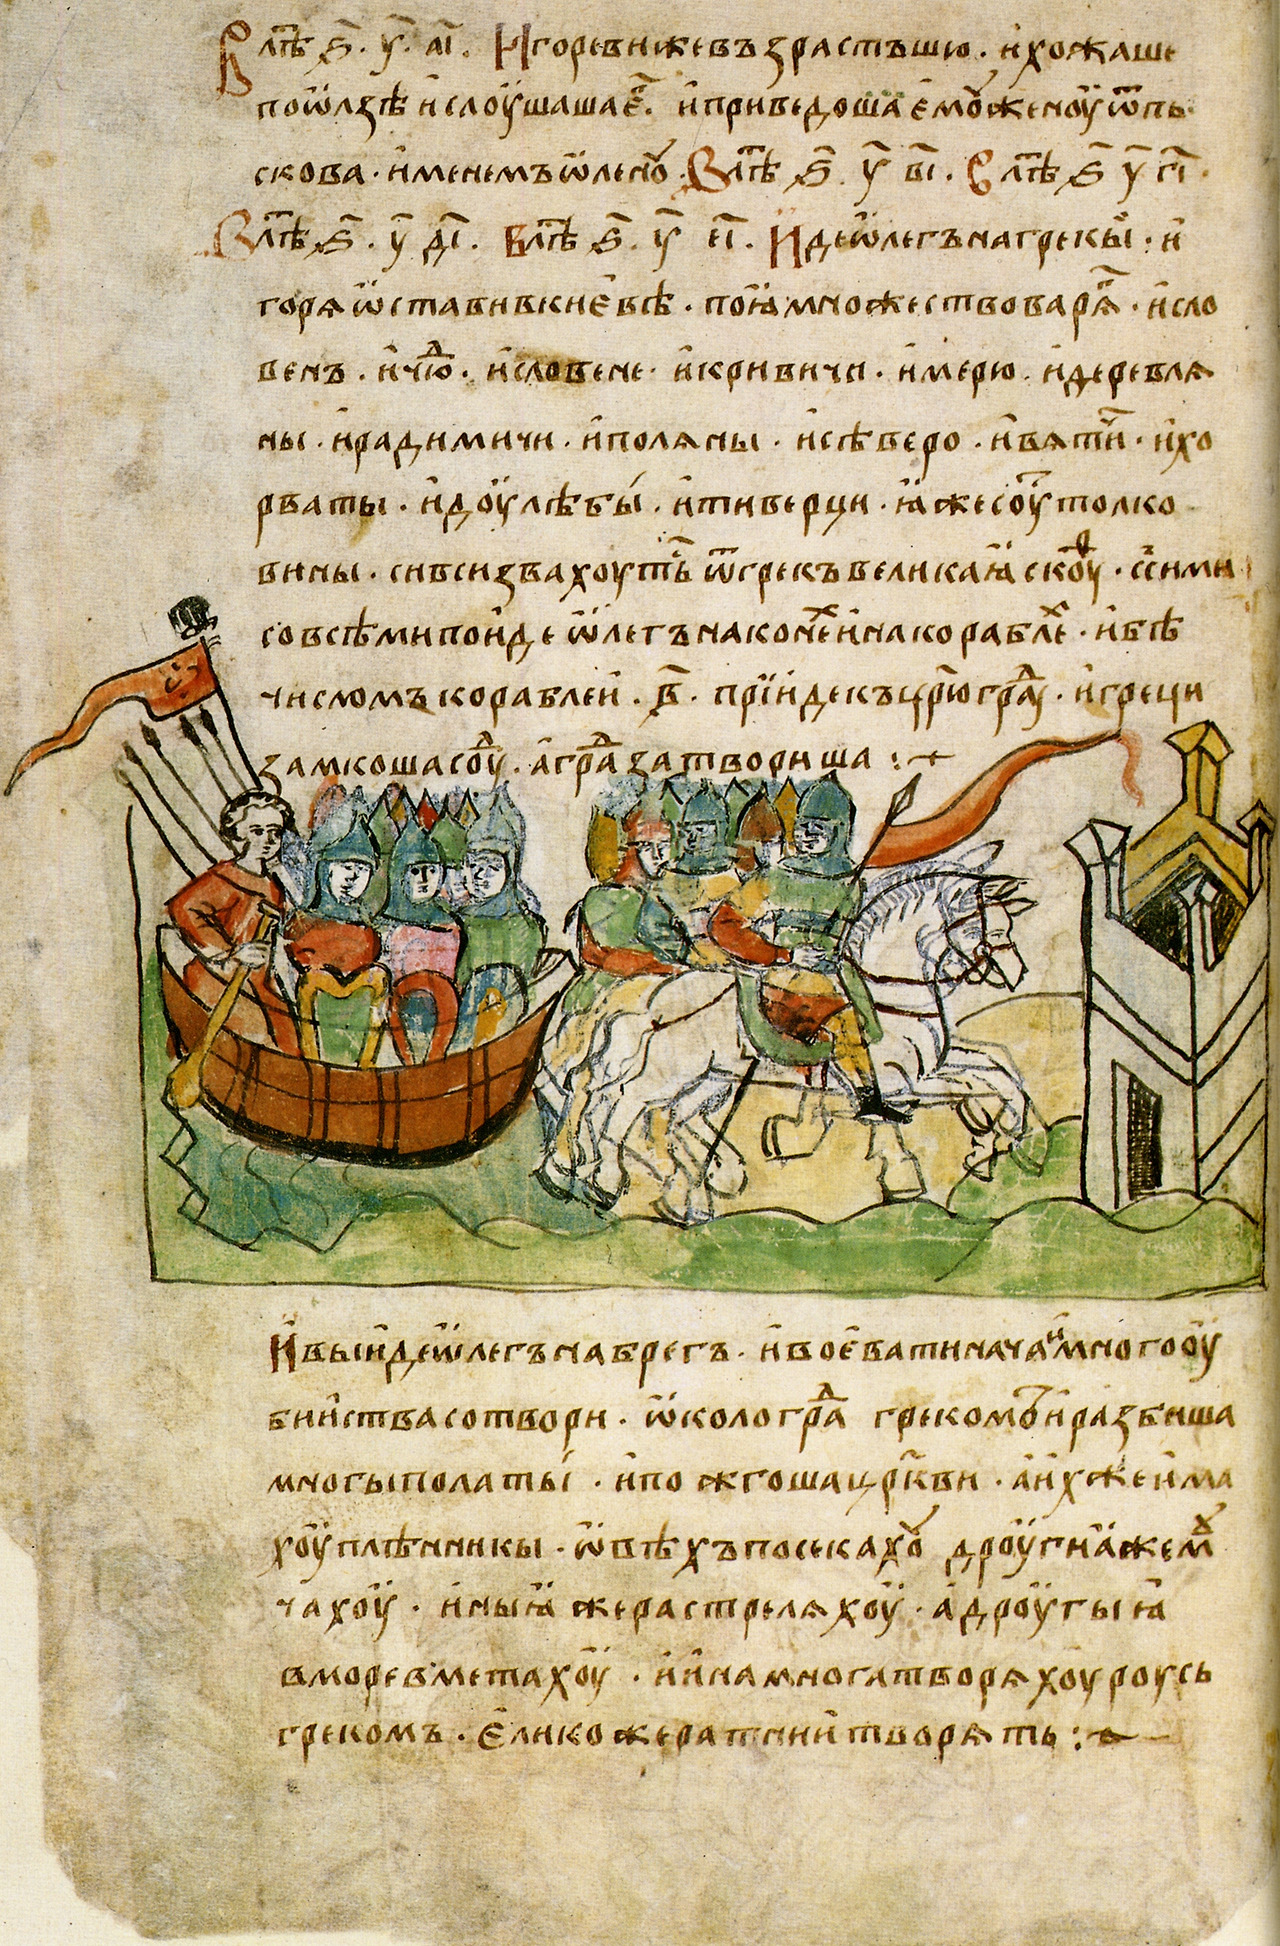 В лѣⷮ ҂ѕ҃ . у҃ . а҃і . Игореви же възрастъшю . и хожаше
по ѿлзѣ и слоушаша е҃ⷢ . и приведоша емоу женоу ѿ пь
скова . именемъ ѡленоу . В лѣⷮ ҂ѕ҃ . у҃ . в҃і . В лѣⷮ ҂ѕ҃ у҃ г҃і .
В лѣⷮ ҂ѕ҃ . у҃ д҃і . В лѣⷮ ҂ѕ҃ . у҃ е҃і . Иде ѡлегъ на грекы . и
горя ѡставив киевѣ . поꙗ множество варяⷢ . и сло
венъ . и чюⷣ . и словене . и кривичи . и мерю . и деревля
ны . и радимичи . и поляны . и сѣверо . и вятиⷱ . и хо
рваты . и доулѣбы . и тиверци . ꙗже соуⷮ толко
вины . си вси звахоутьⷭ ѿ грекъ великаꙗ скоуⷴ . с сими
со всѣми поиде ѡлегъ на конеⷯ и на кораблеⷯ . и бѣ
числомъ кораблеи . в҃ . прїиде къ цр҃ю граⷣу . и греци
замкоша соуⷣ . а граⷣ затвориша :~
И выиде ѡлегъ на брегъ . и воевати начаⷩ много оу
биіства сотвори . ѡколо граⷣа грекомъ и разбиша
многы полаты . и пожгоша цр҃кви . а ихже има
хоу плѣнникы . ѡвѣхъ посекахоу дроугиꙗ же моⷱ
чахоу . иныꙗ же растреляхоу . а дроугыꙗ
в море вметахоу . и ина многа творяхоу роусь
грекомъ . елико же ратнии творять :~